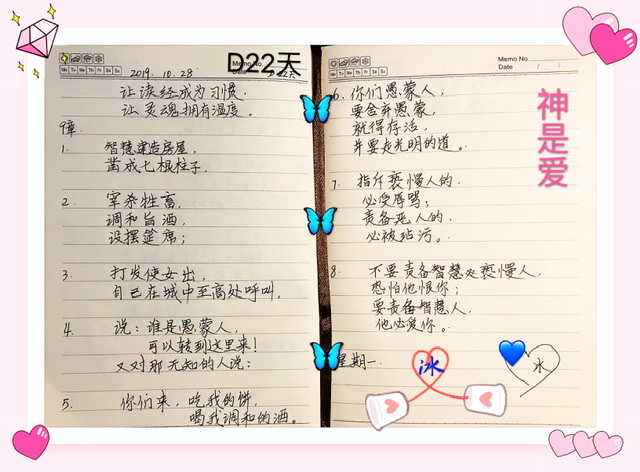 D22天
Memo No.
Mo Tu We Th Fr Sa Su
2019.10.28
Date / /
22天
让读经成为习惯.
让灵魂拥有温度。
9章
1. 智慧建造房屋,
凿成七根柱子.
2. 宰杀牲畜,
调和旨酒,
设摆筵席;
3. 打发使女出,
自己在城中至高处呼叫,
4. 说:谁是愚蒙人,
可以转到这里来!
又对那无知的人说:
5. 你们来,吃我的饼,
喝我调和的酒。
Memo No.
Mo Tu We Th Fr Sa Su
Date / /
6. 你们愚蒙人,
要舍弃愚蒙,
就得存活,
并要走光明的道。
7. 指斥亵慢人的.
必受辱骂;
责备恶人的.
必被玷污。
8. 不要责备智慧亵慢人,
恐怕他恨你;
要责备智慧人,
他必爱你。
星期一
冰
冰
神是爱